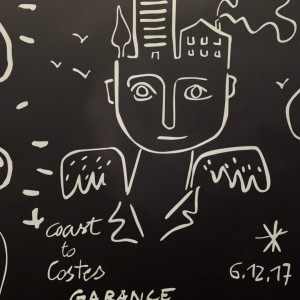 Coast
to
Costes
6.12.17
GARANCE